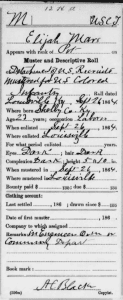 M | U S C T
Elijah Marr
Appears with rank of Pvt on
Muster and Descriptive Roll
of Detachment of U.S. Recruits
U.S. Colored
Infantry
Louisville Ky Sept 26, 1864.
Where born
Age 22 years; occupation Laborer
When enlisted Sept 26, 1864.
Where enlisted Louisville
For what period enlisted years.
Eyes Dark; hair Dark
Complexion Dark; height 5 ft. 10 in.
When mustered in Sept 26, 1864.
Where mustered in Louisville
Bounty paid $ 100; due $ 100
Clothing account:
Last settled 186 ; drawn since $ 100
Date of first muster 186 .
Company to which assigned
Remarks:
Book mark:
A C Black